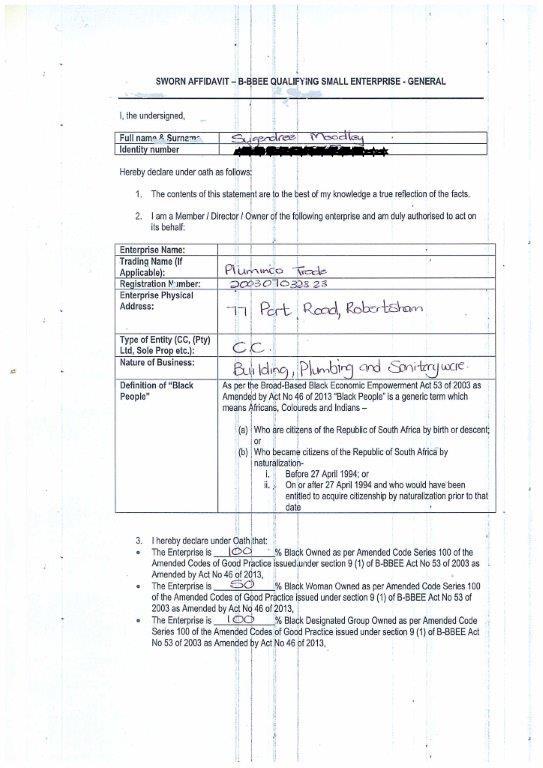 SWORN AFFIDAVIT – B-BBEE QUALIFYING SMALL ENTERPRISE - GENERAL
I, the undersigned,
Full name & Surname Sugendree Moodley
Identity number
Hereby declare under oath as follows:
1. The contents of this statement are to the best of my knowledge a true reflection of the facts.
2. I am a Member / Director / Owner of the following enterprise and am duly authorised to act on
its behalf:
Enterprise Name:
Trading Name (If
Applicable): Pluminco Trade
Registration Number: 2003070328 23
Enterprise Physical
Address: 77 Port Road, Robertsham
Type of Entity (CC, (Pty)
Ltd, Sole Prop etc.): C.C.
Nature of Business: Building, Plumbing and Sanitaryware.
Definition of "Black
People"
As per the Broad-Based Black Economic Empowerment Act 53 of 2003 as
Amended by Act No 46 of 2013 "Black People" is a generic term which
means Africans, Coloureds and Indians –
(a) Who are citizens of the Republic of South Africa by birth or descent;
or
(b) Who became citizens of the Republic of South Africa by
naturalization-
i. Before 27 April 1994; or
ii. On or after 27 April 1994 and who would have been
entitled to acquire citizenship by naturalization prior to that
date
3. I hereby declare under Oath that:
• The Enterprise is 100 % Black Owned as per Amended Code Series 100 of the
Amended Codes of Good Practice issued under section 9 (1) of B-BBEE Act No 53 of 2003 as
Amended by Act No 46 of 2013,
• The Enterprise is 50 % Black Woman Owned as per Amended Code Series 100
of the Amended Codes of Good Practice issued under section 9 (1) of B-BBEE Act No 53 of
2003 as Amended by Act No 46 of 2013,
• The Enterprise is 100 % Black Designated Group Owned as per Amended Code
Series 100 of the Amended Codes of Good Practice issued under section 9 (1) of B-BBEE Act
No 53 of 2003 as Amended by Act No 46 of 2013,